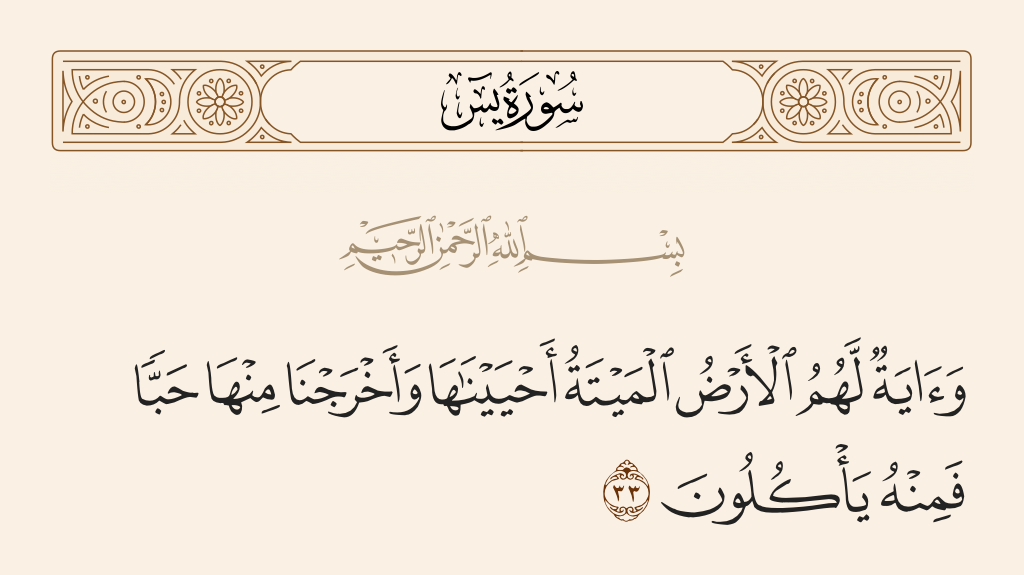 سُورَةُ يسٓ
بِسْمِ ٱللَّهِ ٱلرَّحْمَٰنِ ٱلرَّحِيمِ
وَءَايَةٌ لَّهُمُ ٱلْأَرْضُ ٱلْمَيْتَةُ أَحْيَيْنَٰهَا وَأَخْرَجْنَا مِنْهَا حَبًّا
فَمِنْهُ يَأْكُلُونَ ٣٣